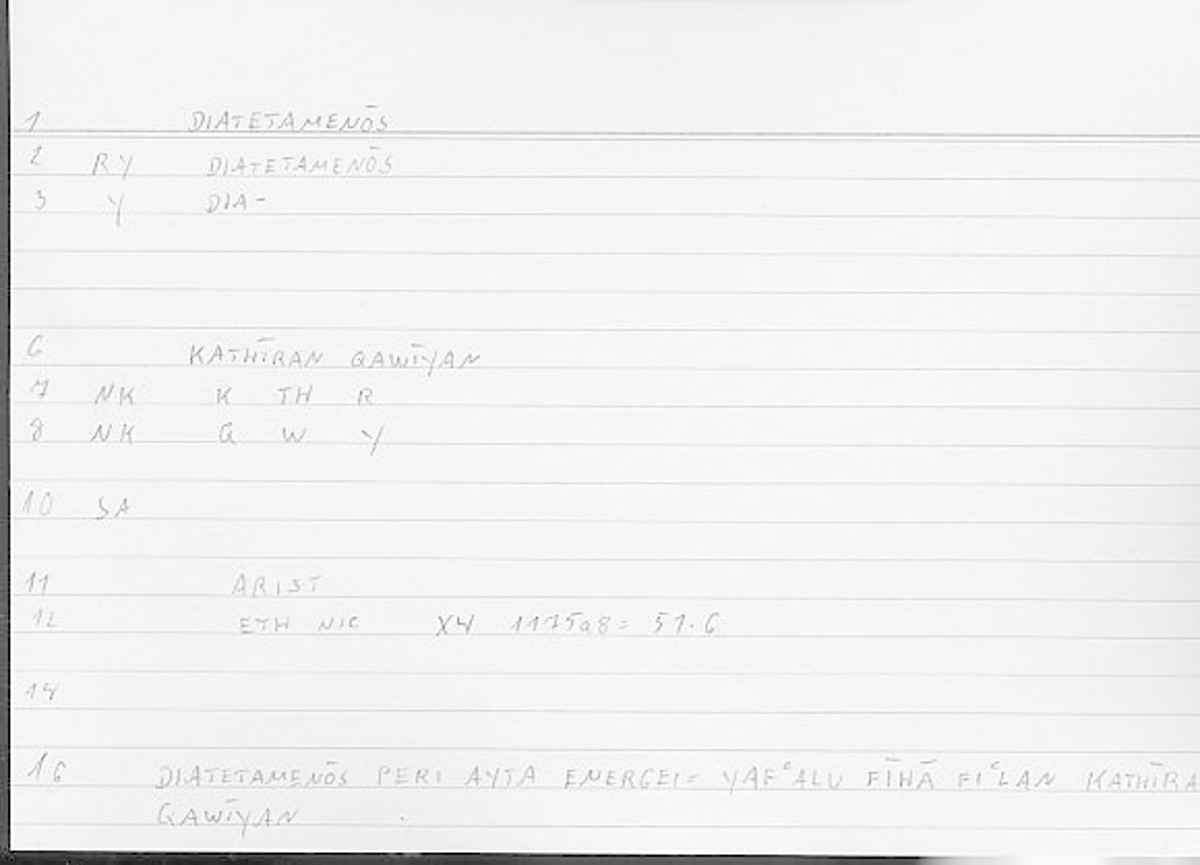 1 DIATETAMENŌS
2 RY DIATETAMENŌS
3 Y DIA-
6 KATHĪRAN QAWĪYAN
7 NK K TH R
8 NK Q W Y
10 SA
11 ARIST
12 ETH NIC X4 1175a8= 51.6
14
16 DIATETAMENŌS PERI AYTA ENERGEI= YAFʿALU FĪHĀ FIʿLAN KATHĪRA
QAWĪYAN